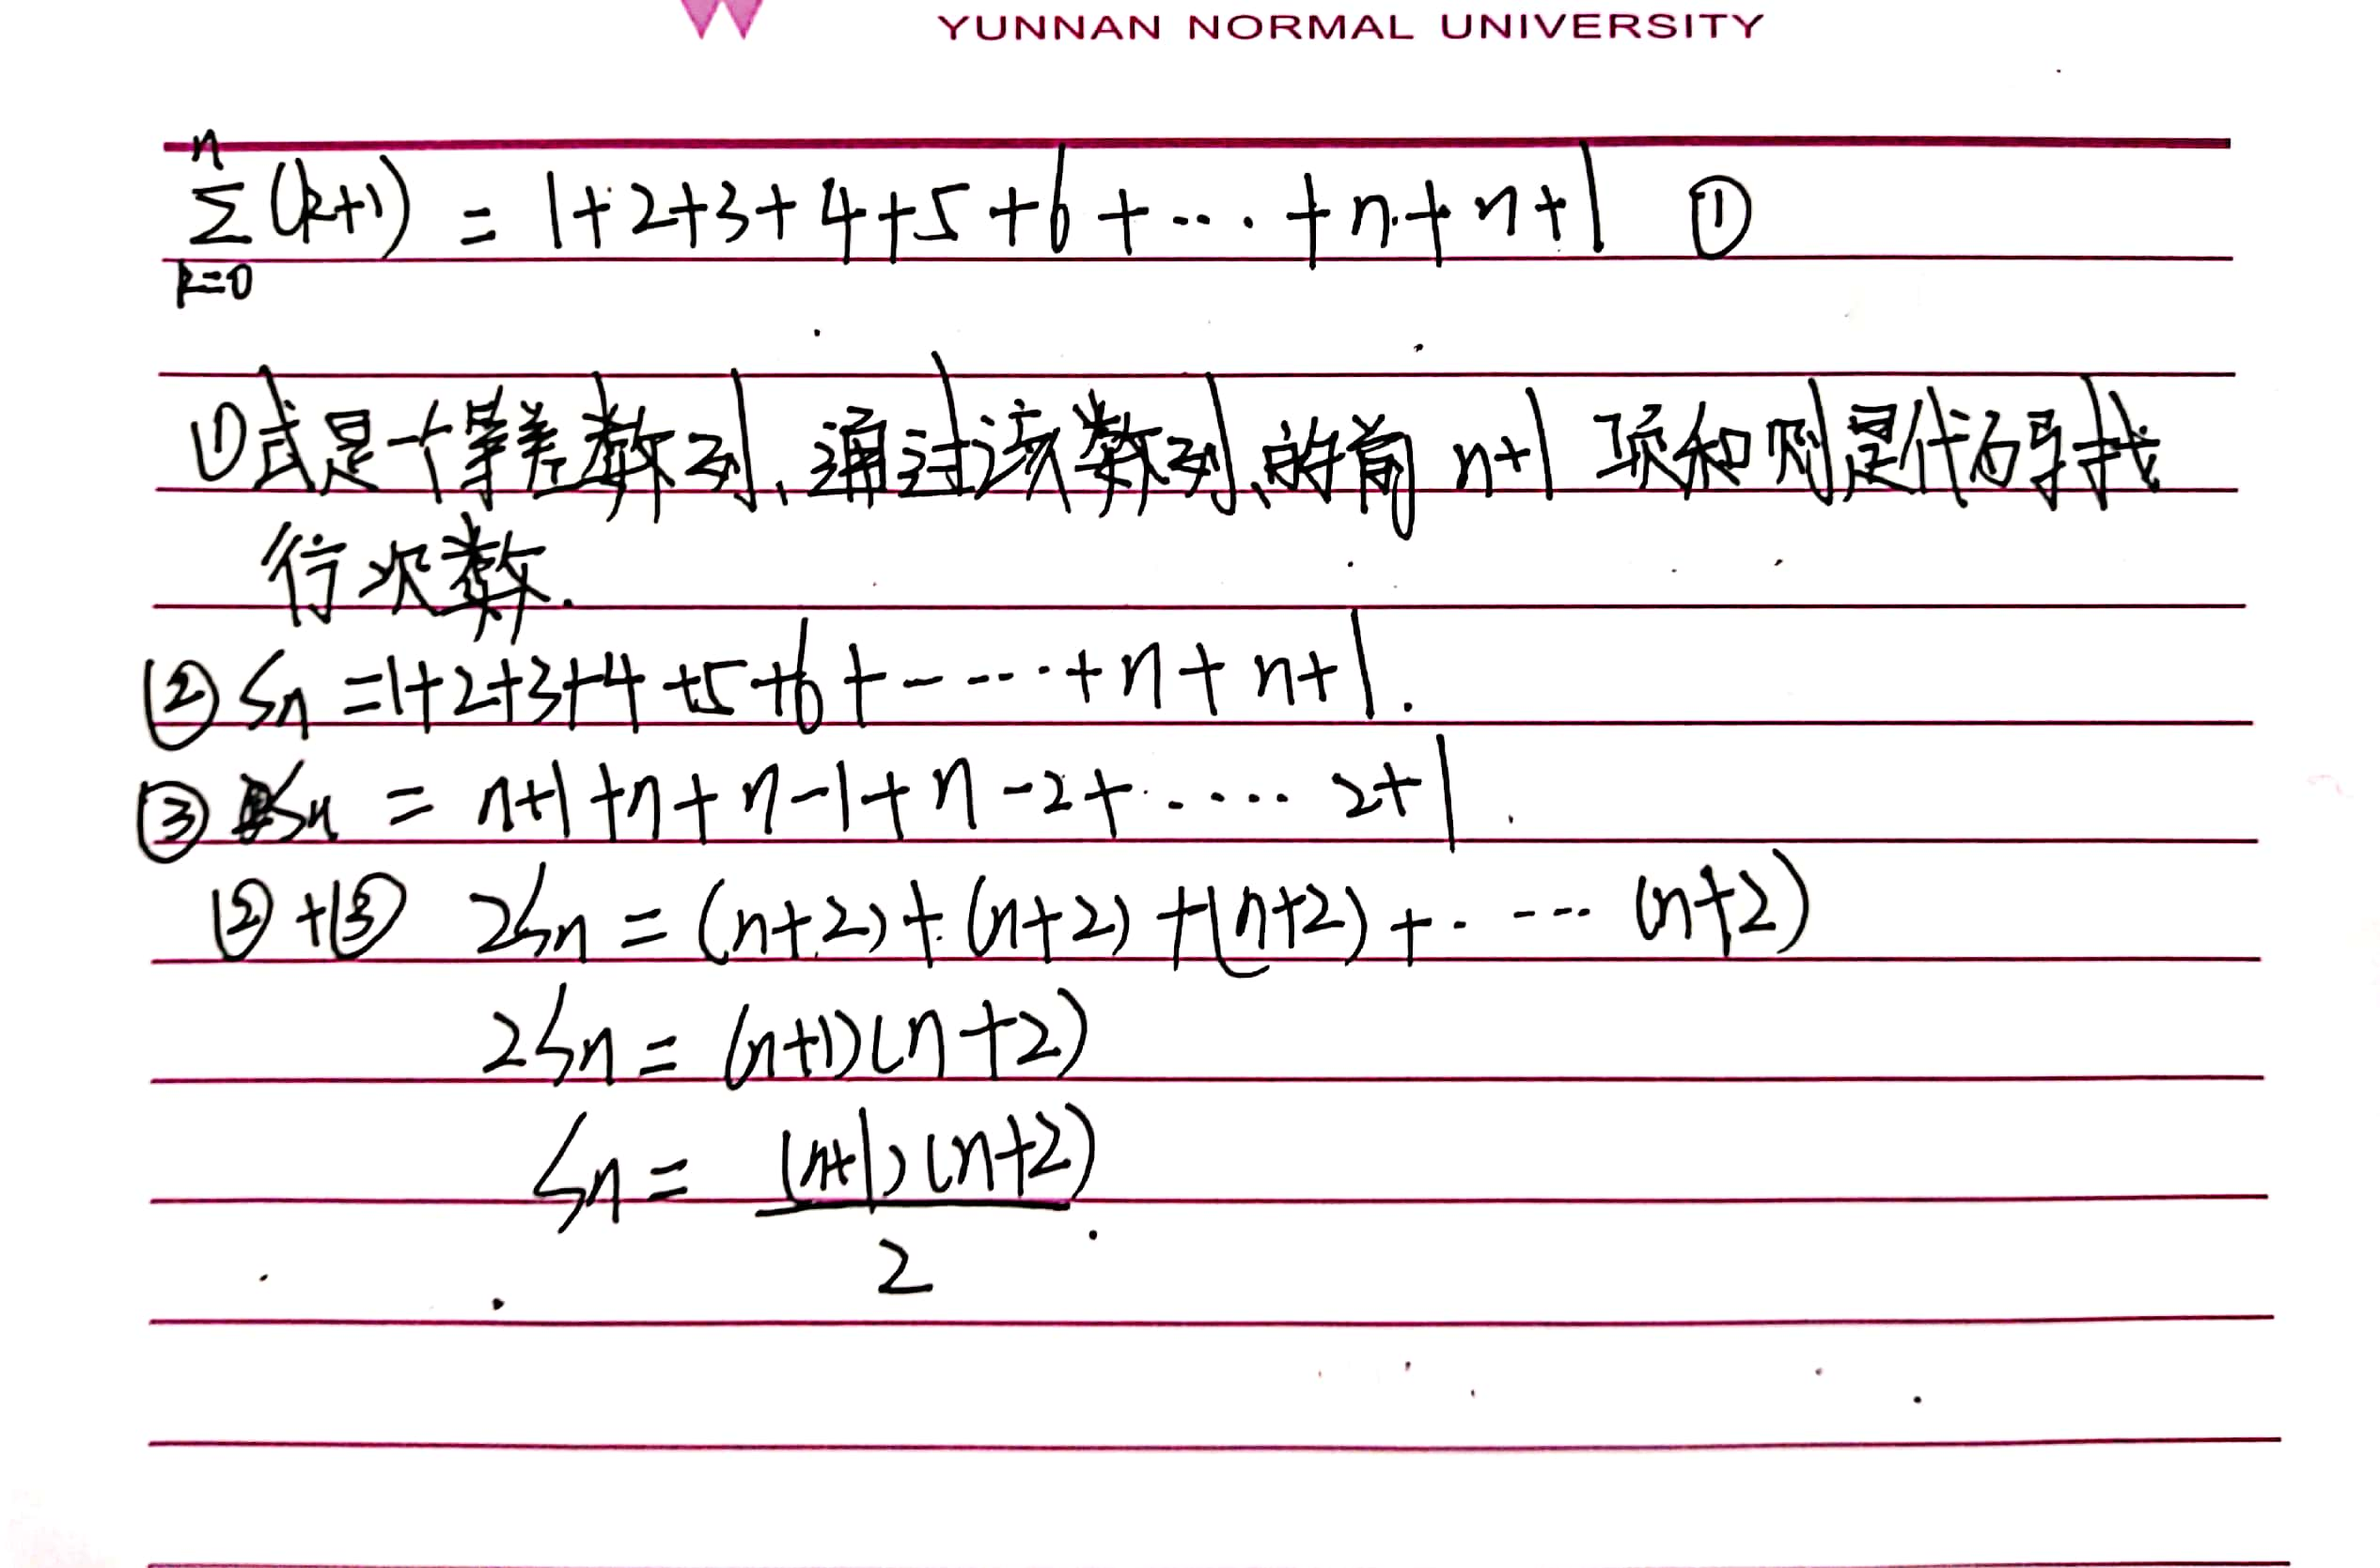 YUNNAN NORMAL UNIVERSITY
n
∑ (k+1) = 1+2+3+4+5+6+····+n+n+1 ①
k=0
①式是一个等差数列、通过该数列、的前 n+1 项和则是代码执
行次数.
② Sn =1+2+3+4+5+6+-----+n+n+1.
③ Sn = n+1+n+n-1+n-2+······ 2+1.
②+③ 2Sn = (n+2)+(n+2)+(n+2)+····· (n+2)
2Sn = (n+1)(n+2)
Sn = (n+1)(n+2)
2